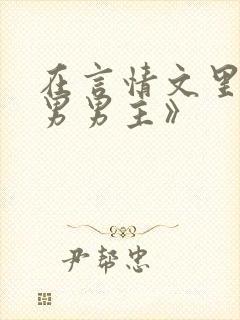 在言情文里
男男主》
尹帮忠